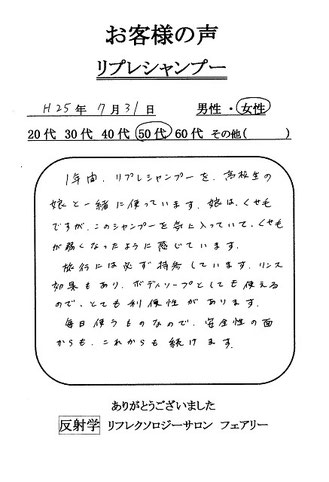 お客様の声
リプレシャンプー
H25年 7月31日 男性・女性
20代 30代 40代 50代 60代 その他( )
1年間、リプレシャンプーを、高校生の
娘と一緒に使っています。娘は、くせ毛
ですが、このシャンプーを気に入っていて、くせ毛
が弱くなったように感じています。
旅行には必ず持参しています。リンス
効果もあり、ボディソープとしても使える
ので、とても利便性があります。
毎日使うものなので、安全性の面
からも、これからも続けます。
ありがとうございました
反射学 リフレクソロジーサロン フェアリー